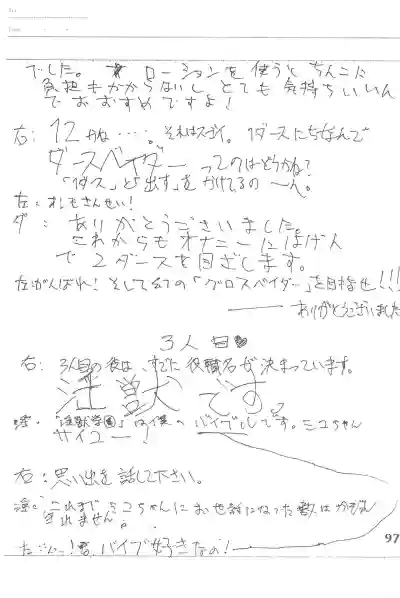 でした。 ★ ローションを使うとちんこに
負担もかからないし、とても気持ちいいん
でおおすめですよ!
右: 12かね・・・・。それはスゴイ。1ダースにちなんで
ダースベイダーってのはどうかね?
「1ダス」と出す」をかけてるの〜ん。
左: オレもさんせい!
ダ: ありがとうございました。
これからもオナニーにはげん
で2ダースを目ざします。
左がんばれ! そして の「グロスベイダー」を目指せ!!!
ありがとうございました
3人目♥
右: 3人目の彼は、すでに役職名が決まっています。
淫獣です。
淫: 「淫獣学園」は僕のバイブルです。ミユちゃん
サイコー!
右: 思い出を話して下さい。
淫: これまでミユちゃんにお世話になった数はかぞえ
きれません。
バイブ好きなの!
97